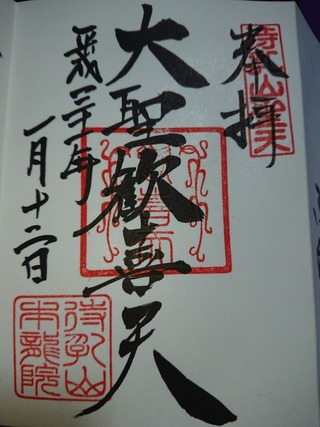 奉拝
待乳山聖天
大聖歓喜天
平成三十一年
一月十二日
待乳山
本龍院